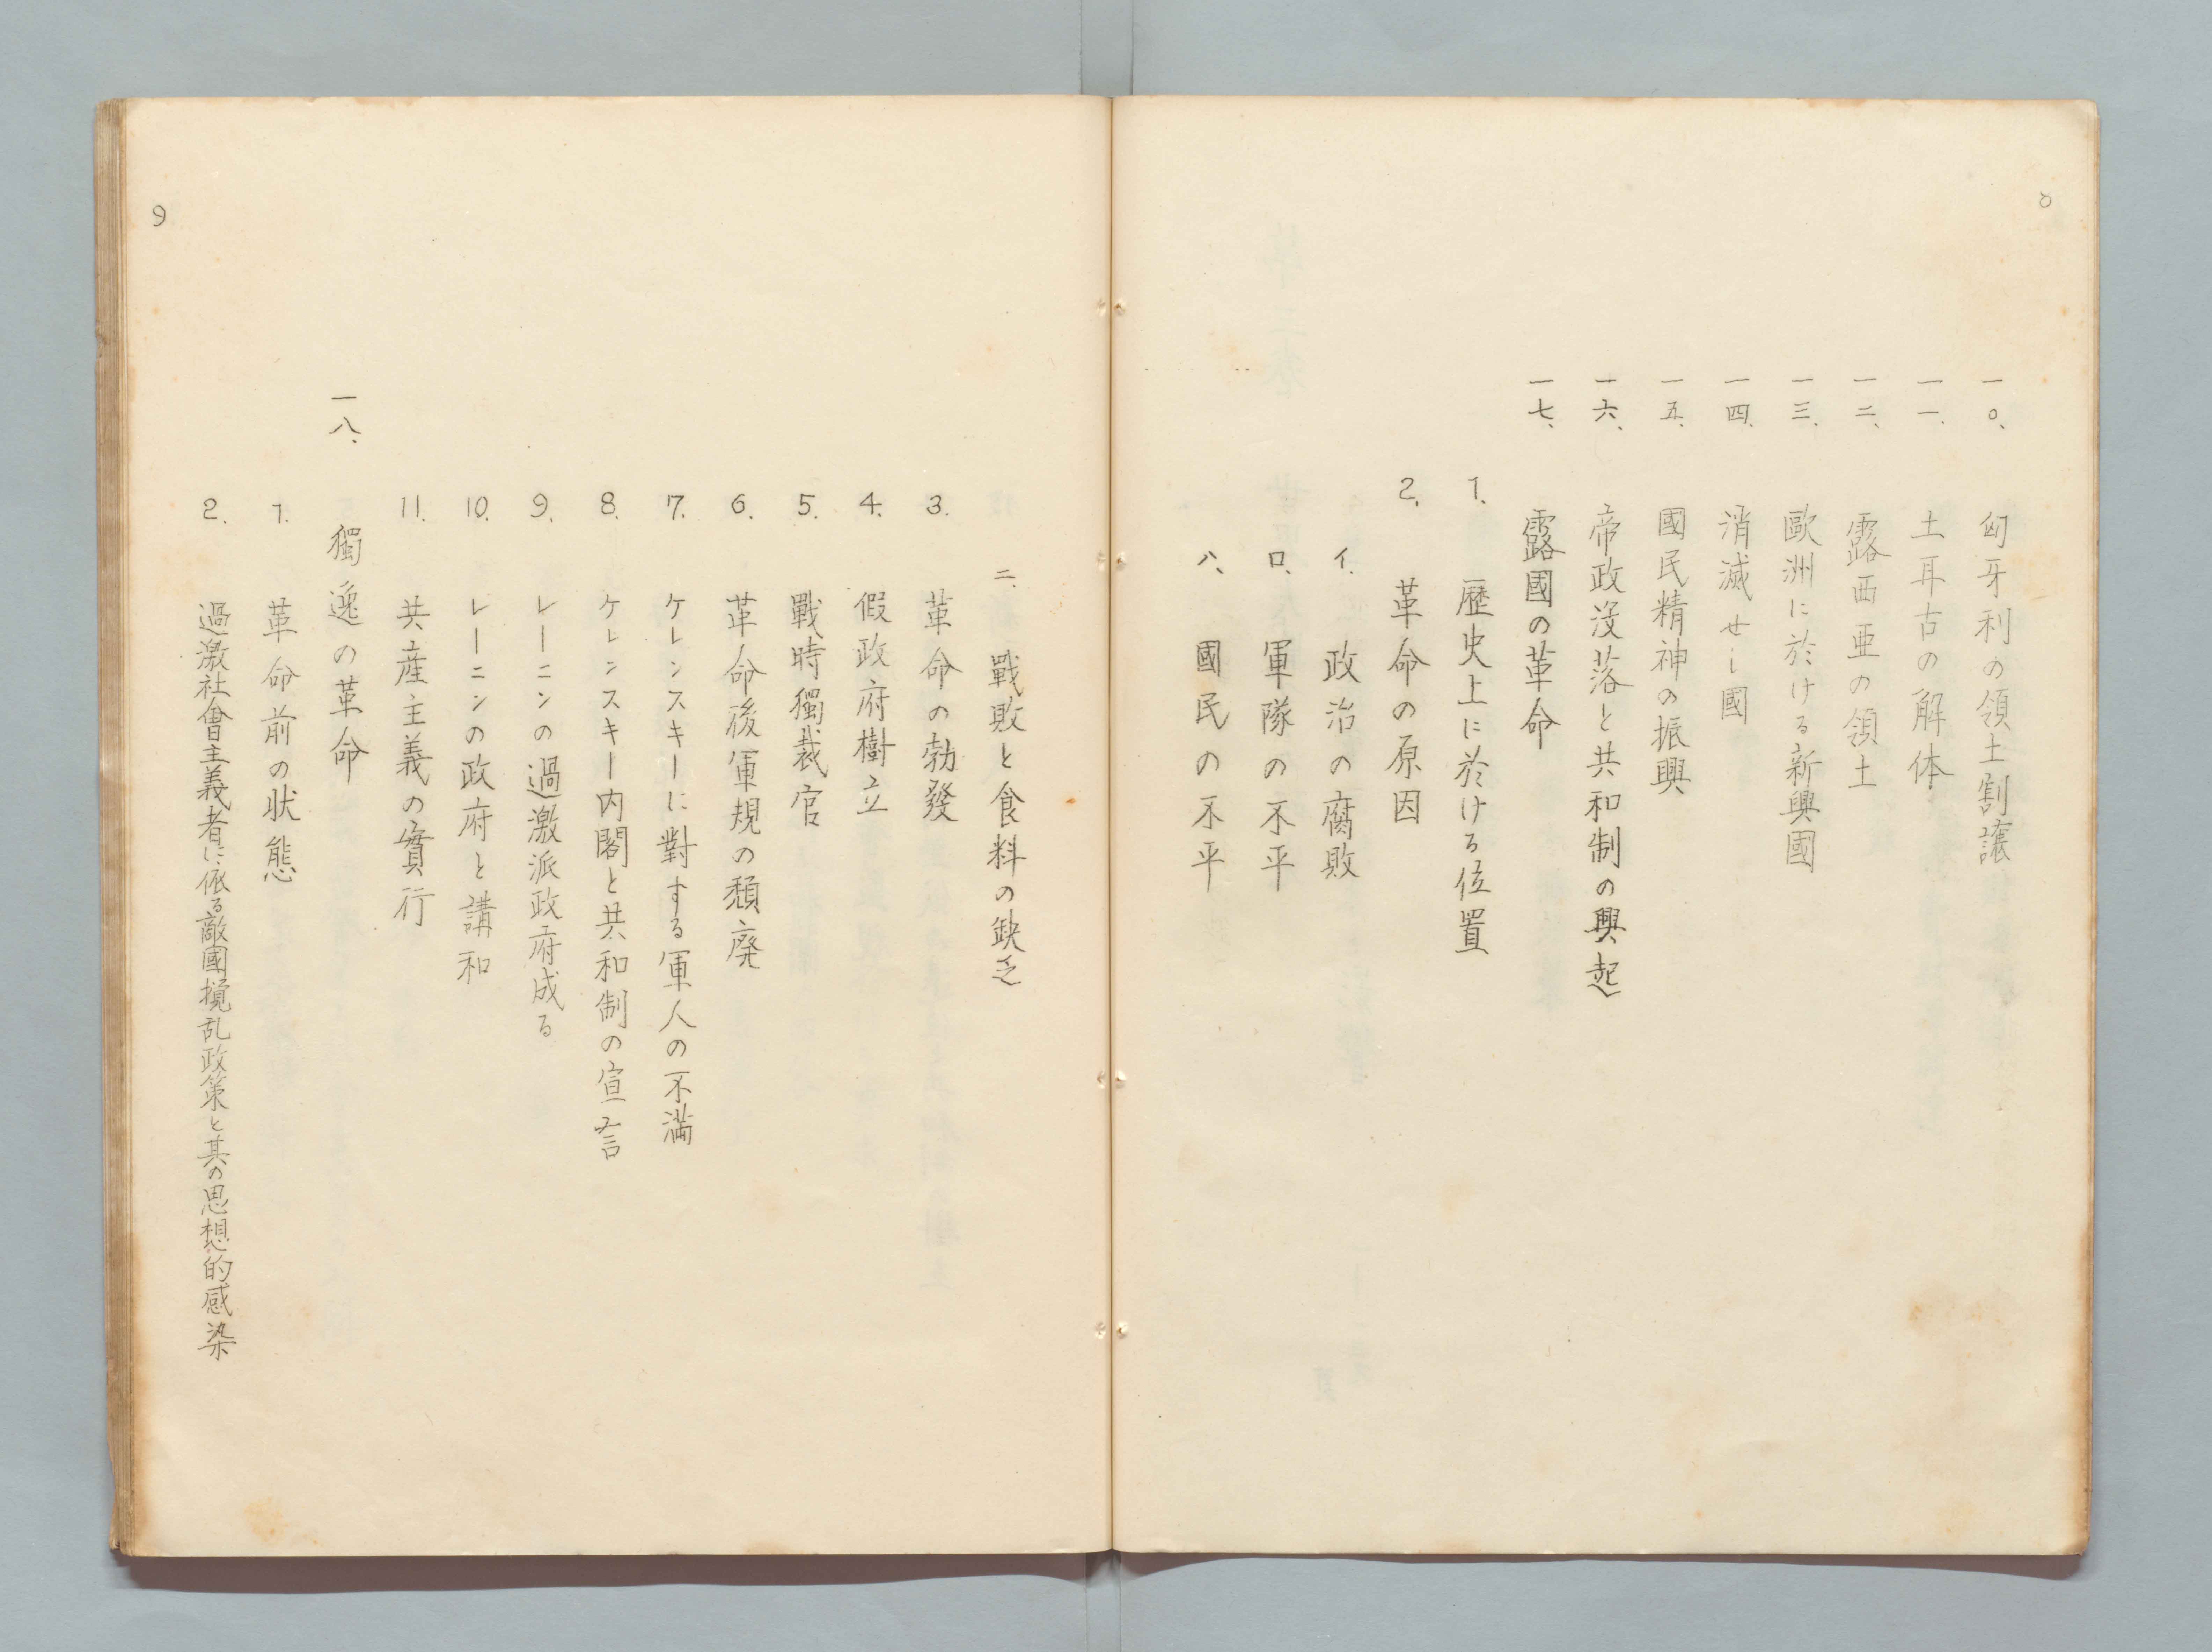 8
一〇、 匈牙利の領土割譲
一一、 土耳古の解体
一二、 露西亜の領土
一三、 歐洲に於ける新興國
一四、 消滅せし國
一五、 國民精神の振興
一六、 帝政没落と共和制の興起
一七、 露國の革命
1. 歴史上に於ける位置
2. 革命の原因
イ、 政治の腐敗
ロ、 軍隊の不平
ハ、 國民の不平
ニ、 戰敗と食料の缺乏
3. 革命の勃發
4. 假政府樹立
5. 戰時獨裁官
6. 革命後軍規の頽廃
7. ケレンスキーに對する軍人の不満
8. ケレンスキー内閣と共和制の宣言
9. レーニンの過激派政府成る
10. レーニンの政府と講和
11. 共産主義の實行
一八、 獨逸の革命
1. 革命前の状態
2. 過激社會主義者に依る敵國撹乱政策と其の思想的感染
9